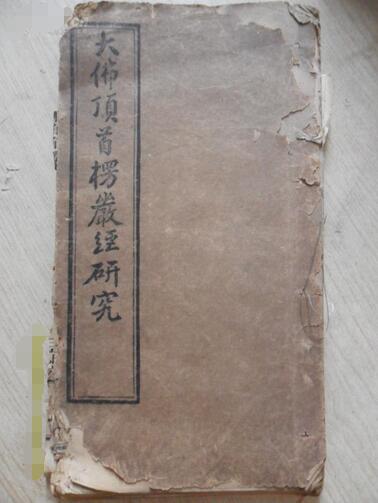 大佛頂首楞嚴經研究